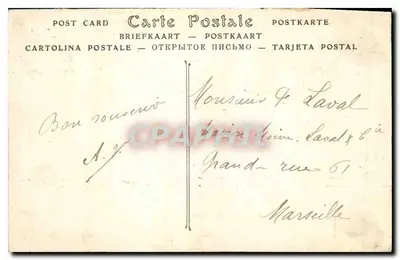 POST CARD Carte Postale POSTKARTE
BRIEFKAART — POSTKAART
CARTOLINA POSTALE — ОТКРЫТОЕ ПИСЬМО — TARJETA POSTAL
Bon souvenir
A. J.
Monsieur F Laval
Laval & Cie
Grand-rue 61
Marseille
CPAPHIL